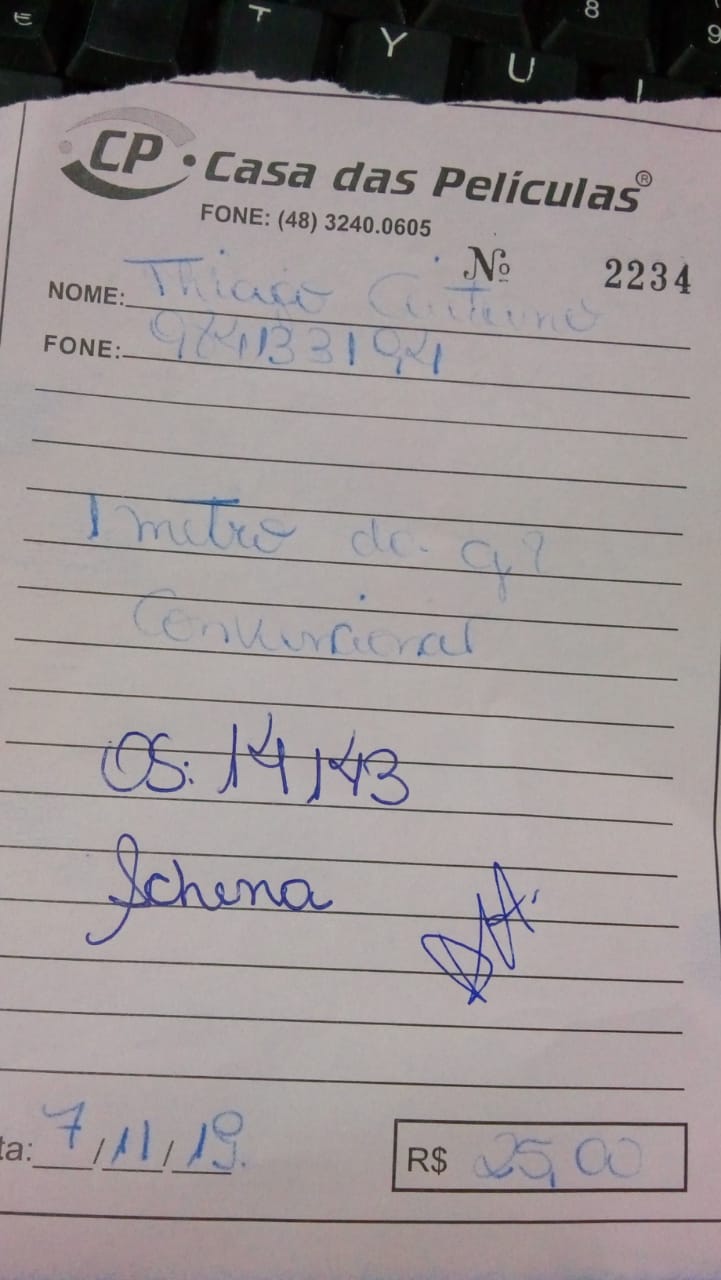 € T Y U I 8 9
CP • Casa das Películas®
FONE: (48) 3240.0605
Nº 2234
NOME: Thiago
FONE: 984133194
1 metro de g?
Convencional
OS: 14143
Schena
ta: 7/11/19.
R$ 25,00